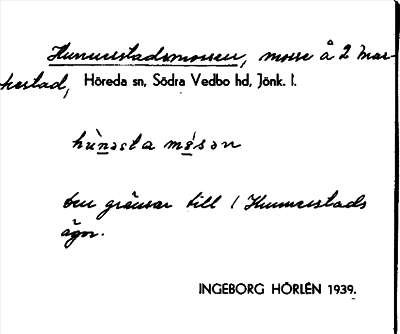 Hunnerstadsmossen, mosse å 2 Mar-
kestad, Höreda sn, Södra Vedbo hd, Jönk. l.
hùnəsta mósən
den gränsar till 1 Hunnerstads
ägor.
INGEBORG HÖRLÉN 1939.